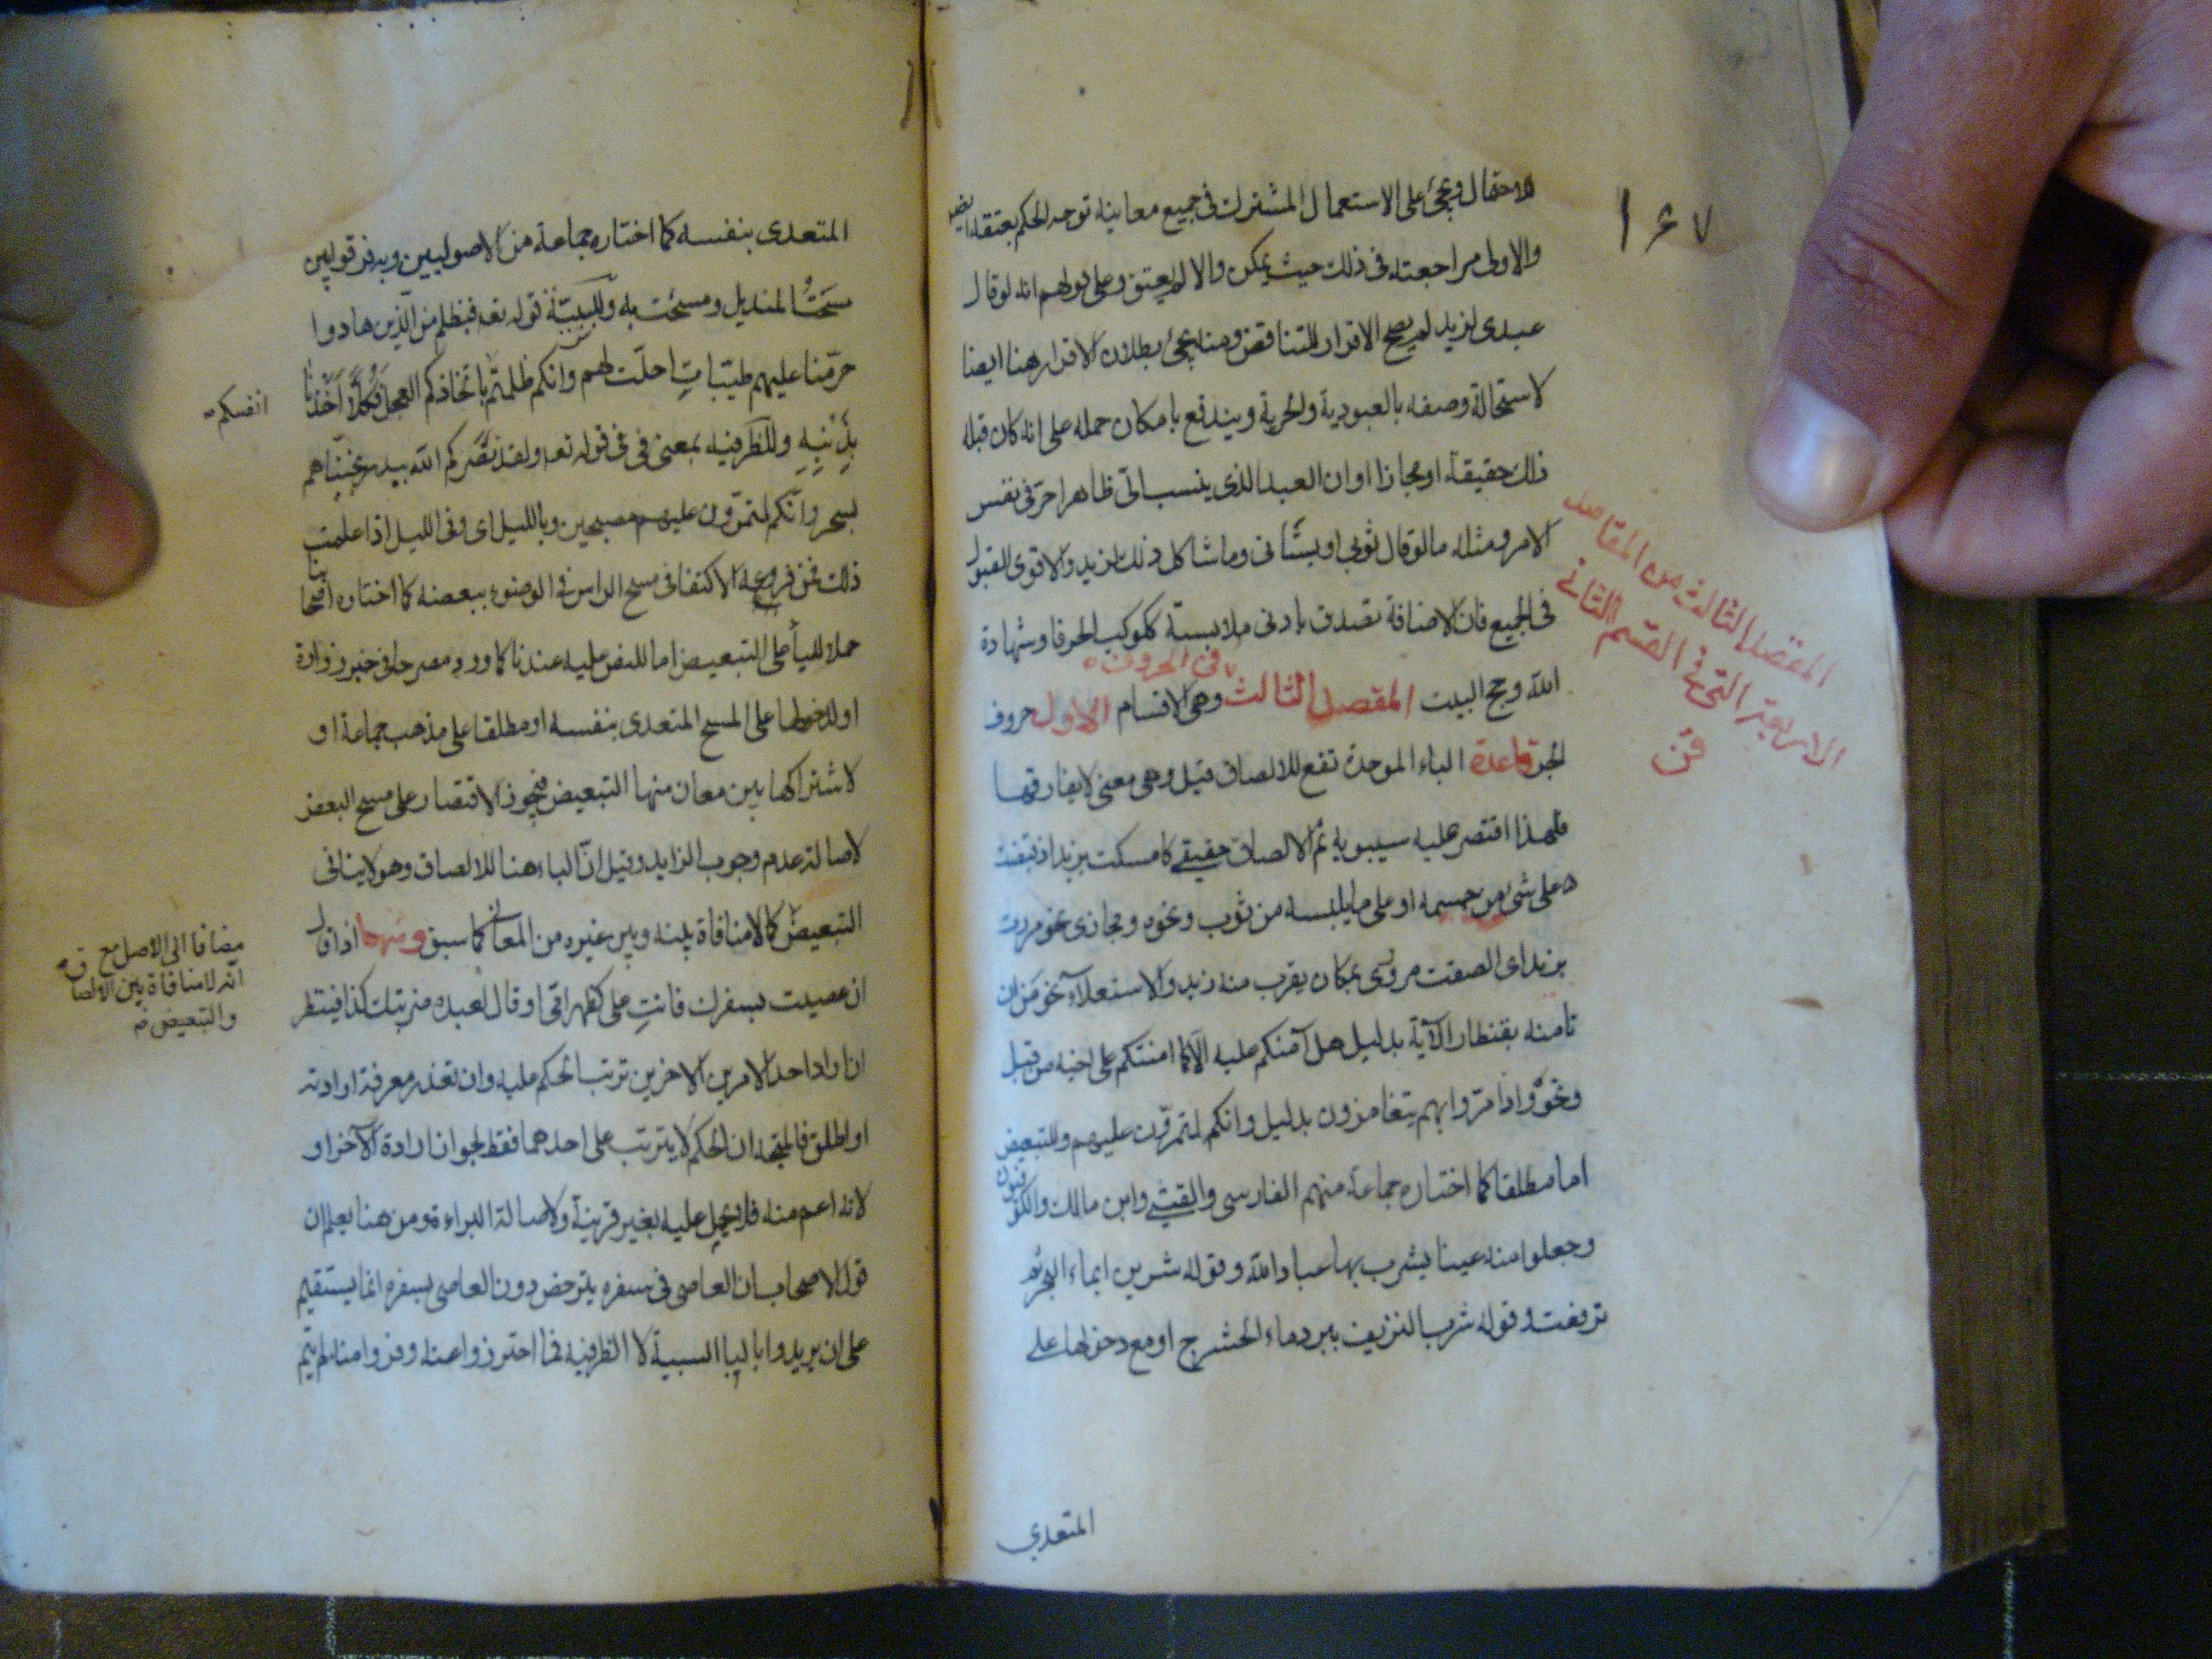 ١٤٧
للاحتمال ويجئ على الاستعمال المشترك في جميع معانيه توجه الحكم بعتقه ايضا
والاولى مراجعته في ذلك حيث يمكن والا لم يعتق وعلى قولهم انه لو قال
عبدى لزيد لم يصح الاقرار للتناقض ومنه يجئ بطلان الاقرار هنا ايضا
لاستحالة وصفه بالعبودية والحرية ويندفع بامكان حمله على انه كان قبله
ذلك حقيقة او مجازا او ان العبد الذى ينسب الى ظاهرا حر في نفس
الامر ومثله ما لو قال ثوبى او بستانى وما شاكل ذلك لزيد والاقوى القبول
في الجميع فان الاضافة تصدق بادنى ملابسة ككوكب الخرقا وشهادة
الله وحج البيت المقصد الثالث في الحروف وهى الاقسام الاول حروف
الجر قاعدة الباء الموحدة تقع للالصاق قيل وهى معنى لا يفارقها
فلهذا اقتصر عليه سيبويه ثم الالصاق حقيقي كامسكت بزيد اذ قبضت
على شئ من جسمه او على ما يلبسه من ثوب ونحوه ومجازى نحو مررت
بزيد اى الصقت مرورى بمكان يقرب منه زيد والاستعلاء نحو من ان
تامنه بقنطار الآية بدليل هل آمنكم عليه الا كما امنتكم على اخيه من قبل
ونحو واذا مروا بهم يتغامزون بدليل وانكم لتمرون عليهم وللتبعيض
اما مطلقا كما اختاره جماعة منهم الفارسى والقتيبي وابن مالك والكوفيون
وجعلوا منه عينا يشرب بها عباد الله وقوله شربن بماء البحر ثم
ترفعت وقوله شرب النزيف ببرد ماء الحشرج او مع دخولها على
المتعدي
المقصد الثالث من المقاصد
الاربعة التي في القسم الثاني
المتعدى بنفسه كما اختاره جماعة من الاصوليين وبه فرقوا بين
مسحت المنديل ومسحت به وللسببية قوله تعه فبظلم من الذين هادوا
حرمنا عليهم طيبات احلت لهم وانكم ظلمتم باتخاذكم العجل فكلا اخذنا
انفسكم
بذنبه وللظرفية بمعنى في في قوله تعه ولقد نصركم الله ببدر نجيناهم
بسحر وانكم لتمرون عليهم مصبحين وبالليل اى وفى الليل اذا علمت
ذلك فمن فروعه الاكتفا في مسح الراس في الوضوء ببعضه كما اختاره اصحابنا
حملا للبا على التبعيض اما للنص عليه عندنا كما ورد مصرحا في خبر زرارة
او لدخولها على المسح المتعدى بنفسه او مطلقا على مذهب جماعة او
لاشتراكها بين معان منها التبعيض فيجوز الاقتصار على مسح البعض
لاصالة عدم وجوب الزايد وقيل ان الباء هنا للالصاق وهو لا ينافى
التبعيض كما لا منافاة بينه وبين غيره من المعانى كما سبق ومنها اذا قال
مضافا الى الاصل مع
انه لا منافاة بين الالصاق
والتبعيض
ان عصيت بسفرك فانت على كظهر امى او قال لعبده ضربتك كذا فينظر
ان اراد احد الامرين الاخرين ترتب الحكم عليه وان تعذر معرفة ارادته
او اطلق فالمتجه ان الحكم لا يترتب على احدهما فقط لجواز ارادة الآخر او
لانه اعم منه فلا يحمل عليه بغير قرينة ولاصالة البراءة ومن هنا يعلم ان
قول الاصحاب ان العاصى في سفره يترخص دون العاصى بسفره انما يستقيم
على ان يريدوا بالبا السببية لا الظرفية فما احترزوا عنه وفروا منه لم يتم